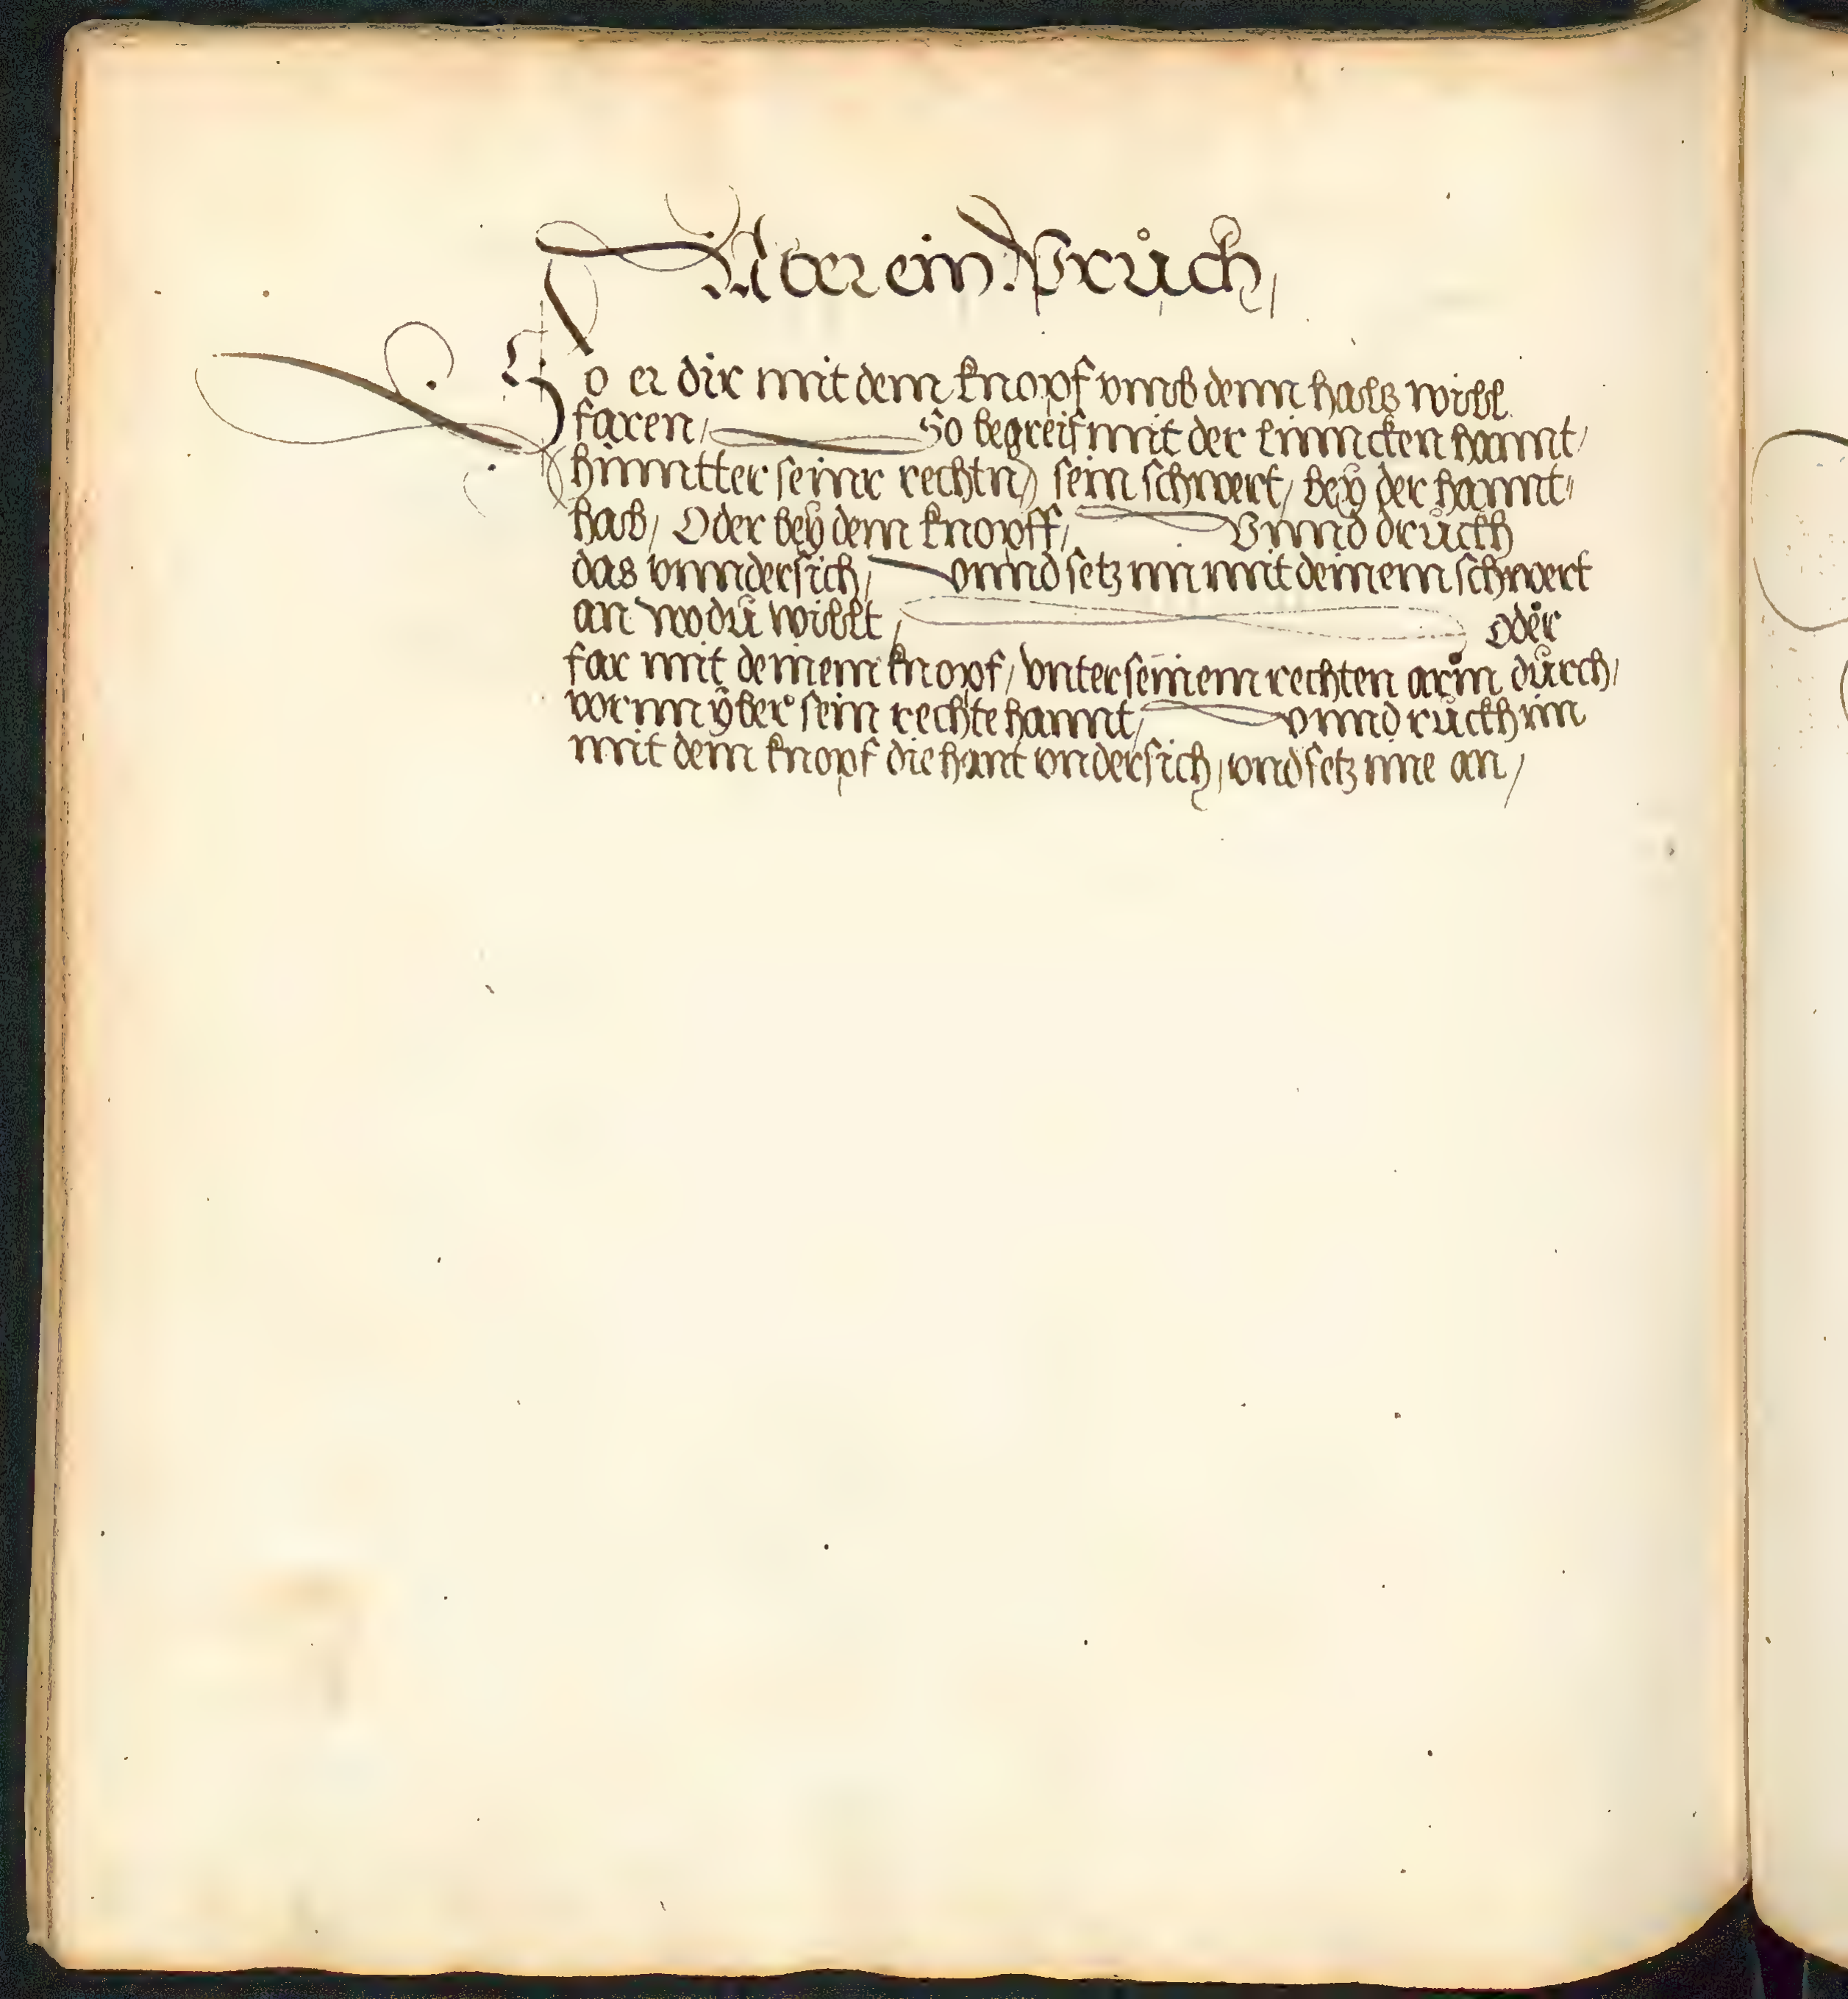 Aber ein Průch,
So er dir mit dem knopf vmb denn hals will
faren, So begreif mit der linncken hannt,
hinntter seinr rechtn, sein schwert, bey der hannt„
hab, Oder bey dem knopff, Vnnd drůckh
das vnndersich, vnnd setz im mit deinem schwert
an wo dů willt, oder
far mit deinem knopf, vnter seinem rechten arm důrch,
vornn yber sein rechte hannt, vnnd růckh im
mit dem knopf die hant vndersich, vnd setz ime an,